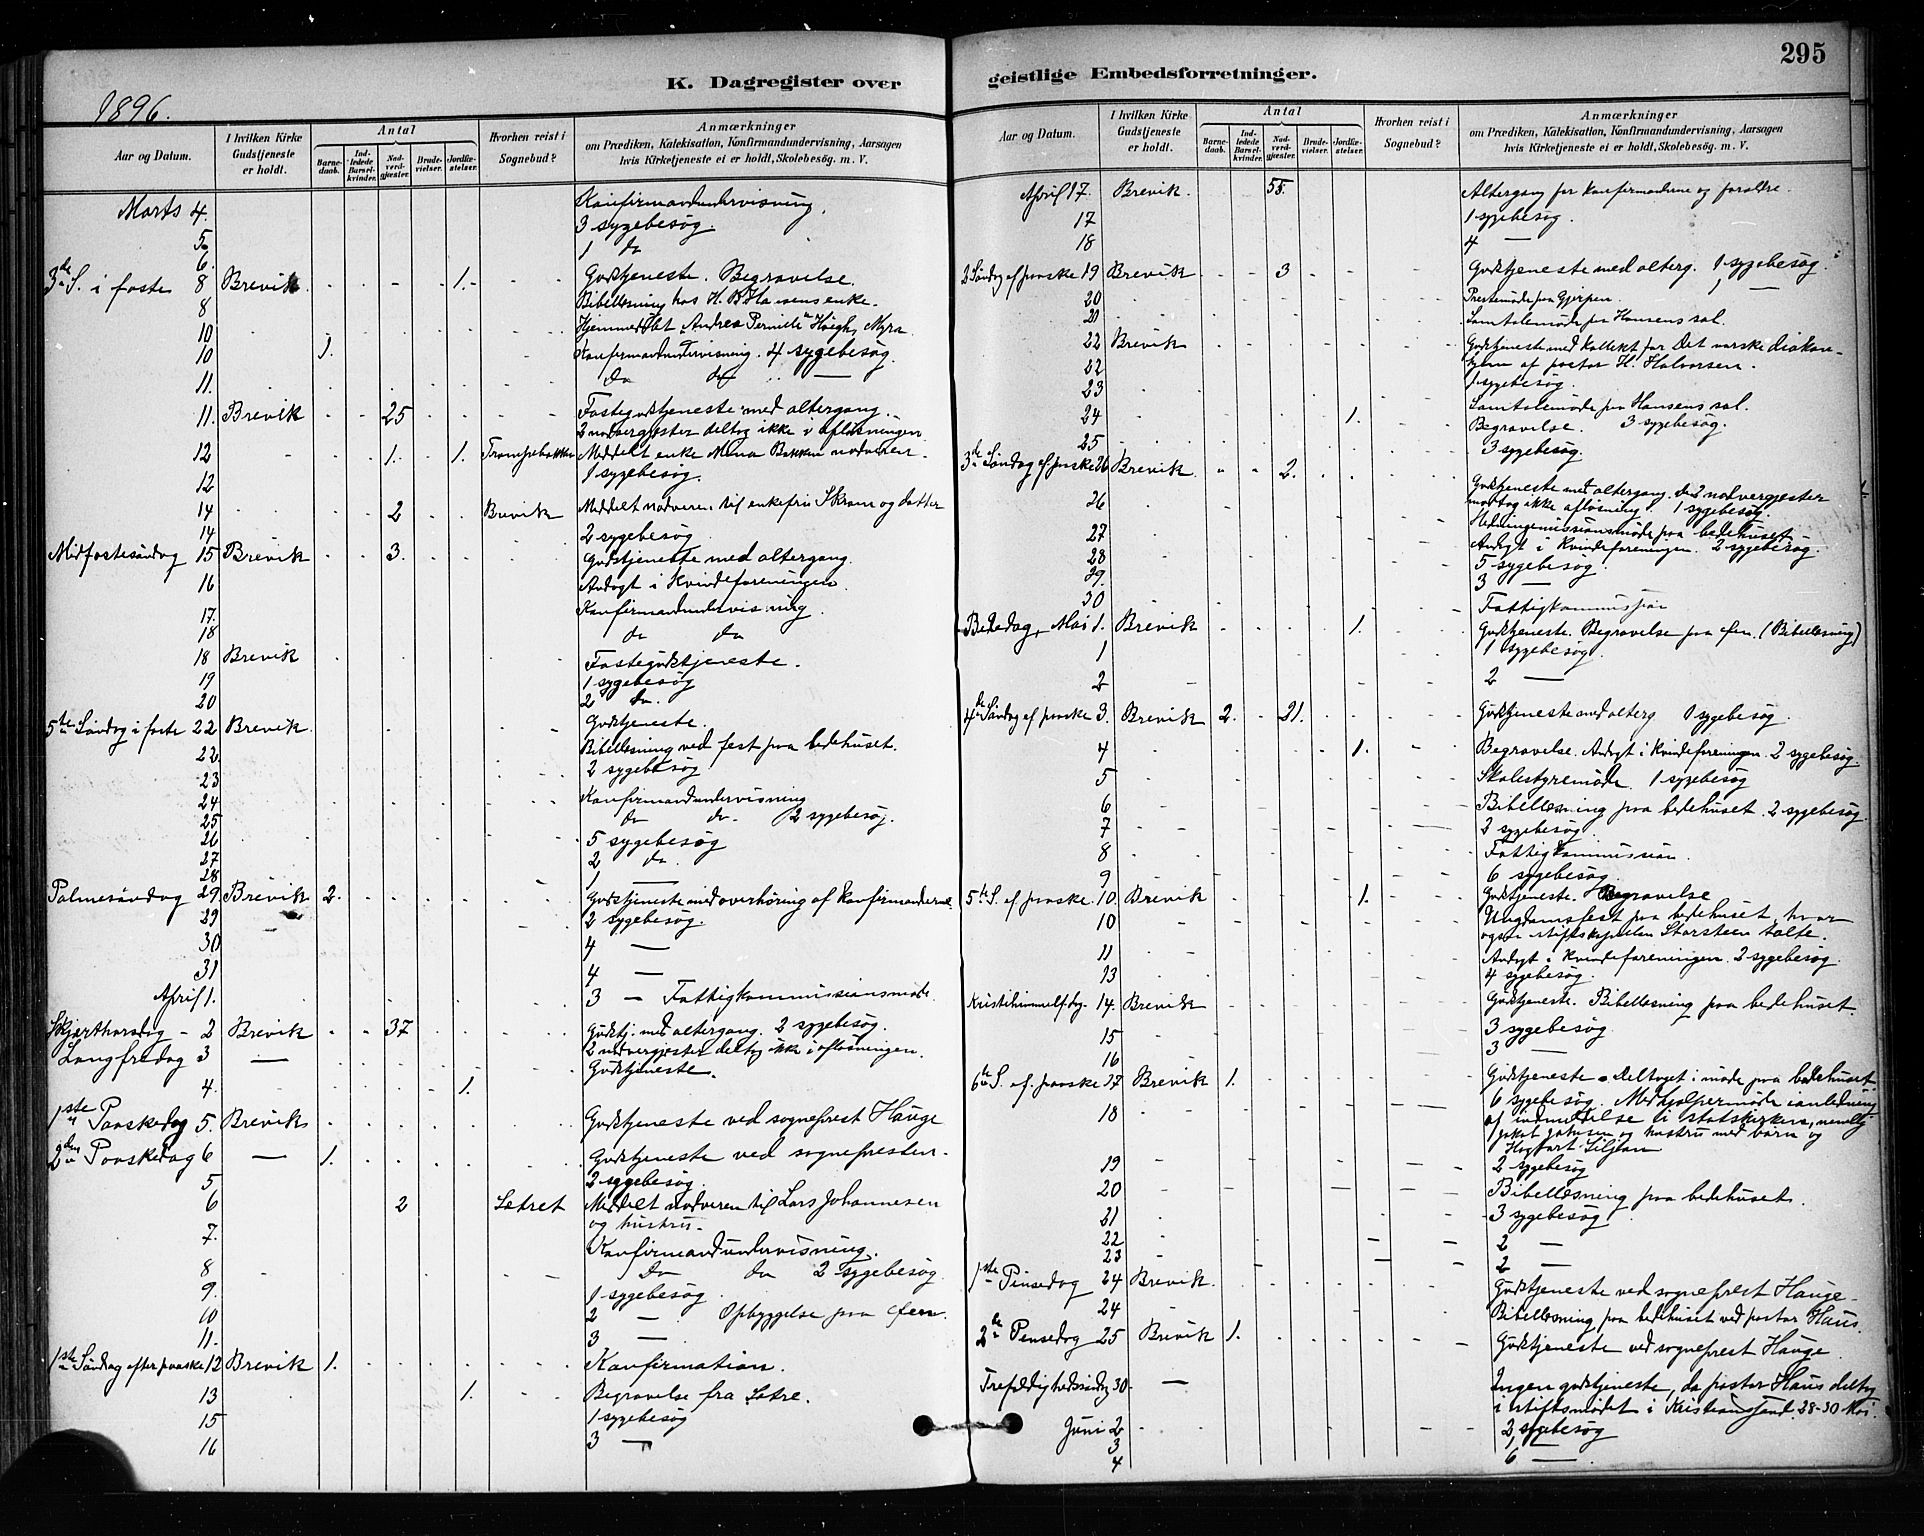 295
K. Dagregister over geistlige Embedsforretninger.
1896.
Aar og Datum. | I hvilken Kirke Gudstjeneste er holdt. | Antal | Hvorhen reist i Sognebud? | Anmærkninger om Prædiken, Katekisation, Konfirmandundervisning, Aarsagen hvis Kirketjeneste ei er holdt, Skolebesøg. m. V.
Barnedaab. | Indledede Barselkvinder. | Nadverdgjæster. | Brudevielser. | Jordfæstelser.
Marts 4. Konfirmandundervisning.
3 sygebesøg.
5. 1 do
6.
3de S. i faste 8 Brevik 1. Gudstjeneste. Begravelse.
8 Bibellesning hos H. B. Hansens enke.
10 Hjemmedøbt Andrea Pernille Høegh, Myra
10 1. Konfirmandundervisning. 4 sygebesøg.
11. do do —
11. Brevik 25 Fastegudstjeneste med altergang.
2 nadvergjester deltog ikke i afløsningen.
12 1. 1. Trompebakken Meddelt enke Mina Bakken nadveren.
12 1 sygebesøg.
14 2 Brevik Meddelt nadveren til enkefru Skram og datter
14 2 sygebesøg
Midfastesøndag 15 Brevik 3. Gudstjeneste med altergang.
16 Andagt i Kvindeforeningen.
17. Konfirmandundervisning.
18 do do
18 Brevik Fastegudstjeneste.
19 1 sygebesøg
20 2 do.
5te Søndag i faste 22 Brevik Gudstjeneste.
22. Bibellesning ved fest paa bedehuset.
23 2 sygebesøg
24 Konfirmandundervisning
25 do do. 2 sygebesøg.
26 5 sygebesøg
27 2 do.
28 1 —
Palmesøndag 29 Brevik 2. Gudstjeneste med overhøring af konfirmanderne.
29 2 sygebesøg.
30 4 —
31 4 —
April 1. 3 — Fattigkommissionsmøde.
Skjærthorsdag – 2 Brevik 37 Gudstj. med altergang. 2 sygebesøg.
2 nadvergjester deltog ikke i afløsningen.
Langfredag 3 — Gudstjeneste.
4. 1.
1ste Paaskedag 5. Brevik Gudstjeneste ved sogneprest Hauge
2den Paaskedag 6 — 1. Gudstjeneste ved sognepresten.
5 2 sygebesøg.
6 2 Sætret Meddelt nadveren til Lars Johannesen
og hustru.
7. Konfirmandundervisning.
8 Do do 2 sygebesøg
9. 1 sygebesøg.
10 2 — Opbyggelse paa Øen.
11. 3 —
1ste Søndag efter paaske 12 Brevik 1. Konfirmation.
13 1. Begravelse fra Sætre.
15 1 sygebesøg
16 3 —
Aar og Datum. | I hvilken Kirke Gudstjeneste er holdt. | Antal | Hvorhen reist i Sognebud? | Anmærkninger om Prædiken, Katekisation, Konfirmandundervisning, Aarsagen hvis Kirketjeneste ei er holdt, Skolebesøg. m. V.
Barnedaab. | Indledede Barselkvinder. | Nadverdgjæster. | Brudevielser. | Jordfæstelser.
April 17. Brevik. 55. Altergang for konfirmanderne og forældre.
17 1 sygebesøg.
18 4 —
2 Søndag ef paaske 19 Brevik 3 Gudstjeneste med alterg. 1 sygebesøg.
20 Prestemøde paa Gjerpen.
20 Samtalemøde paa Hansens sal.
22 Brevik Gudstjeneste med kollekt for Det norske diakon-
hjem af pastor H. Halvorsen.
22 1 sygebesøg.
23 Samtalemøde paa Hansens sal.
24 1. Begravelse. 3 sygebesøg.
25 3 sygebesøg.
3de Søndag ef. paaske 26 Brevik 2. Gudstjeneste med altergang. De 2 nadvergjester
modtog ikke afløsning. 1 sygebesøg.
26 Hedningemissionsmøde paa bedehuset.
27 Andagt i Kvindeforeningen. 2 sygebesøg.
28 5 sygebesøg.
29. 3 —
30 Fattigkommission
Bededag, Mai 1. Brevik 1. Gudstjeneste. Begravelse paa Øen. (Bibellesning)
1 1 sygebesøg.
2 2 —
4de Søndag ef paaske 3. Brevik 2. 21. Gudstjeneste med alterg 1 sygebesøg.
4 1. Begravelse. Andagt i Kvindeforeningen. 2 sygebesøg.
5 Skolestyremøde. 1 sygebesøg
6 Bibellesning paa bedehuset. 2 sygebesøg
7 2 sygebesøg.
8 Fattigkommission.
9 6 sygebesøg.
5te S. ef paaske. 10. Brevik 1. Gudstjeneste. Begravelse
10 Ungdomsfest paa bedehuset, hvor
også stiftskapellan Storsteen talte.
11 Andagt i Kvindeforeningen. 2 sygebesøg.
13 4 sygebesøg.
Kristihimmelf.dag. 14. Brevik Gudstjeneste. Bibellesning paa bedehuset
15 3 sygebesøg.
16 3 —
6te S. ef. paaske 17 Brevik 1. Gudstjeneste. Deltaget i møde paa bedehuset.
18 6 sygebesøg. Medhjælpermøde i anledning
af indmeldelse i statskirken, nemlig
Jakobsen og hustru med børn og
19 2 sygebesøg
20 Bibellesning paa bedehuset.
21 3 sygebesøg
22 2 —
23 2 —
1ste Pinsedag 24 Brevik. Gudstjeneste ved sogneprest Hauge.
24 Bibellesning paa bedehuset ved pastor Haus.
2de Pinsedag 25 Brevik 1. Gudstjeneste ved sogneprest Hauge.
Trefoldighedssøndag 30. — Ingen gudstjeneste, da pastor Haus deltog
i stiftsmødet i Kristianssand. 28-30 Mai.
Juni 2 2 sygebesøg
3 1 —
4 6 —